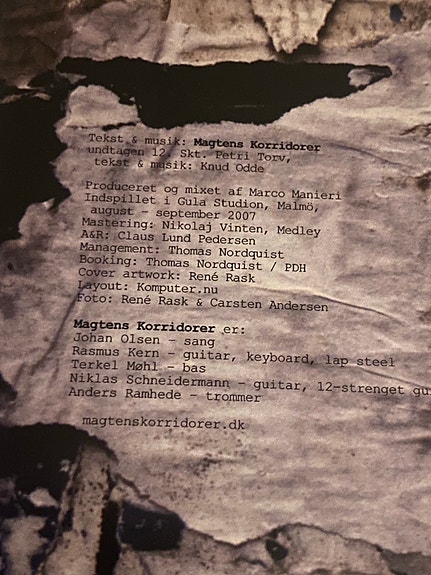 Tekst & musik: Magtens Korridorer
undtagen 12, Skt. Petri Torv,
tekst & musik: Knud Odde
Produceret og mixet af Marco Manieri
Indspillet i Gula Studion, Malmö,
august - september 2007
Mastering: Nikolaj Vinten, Medley
A&R: Claus Lund Pedersen
Management: Thomas Nordquist
Booking: Thomas Nordquist / PDH
Cover artwork: René Rask
Layout: Komputer.nu
Foto: René Rask & Carsten Andersen
Magtens Korridorer er:
Johan Olsen - sang
Rasmus Kern - guitar, keyboard, lap steel
Terkel Møhl - bas
Niklas Schneidermann - guitar, 12-strenget gu
Anders Ramhede - trommer
magtenskorridorer.dk